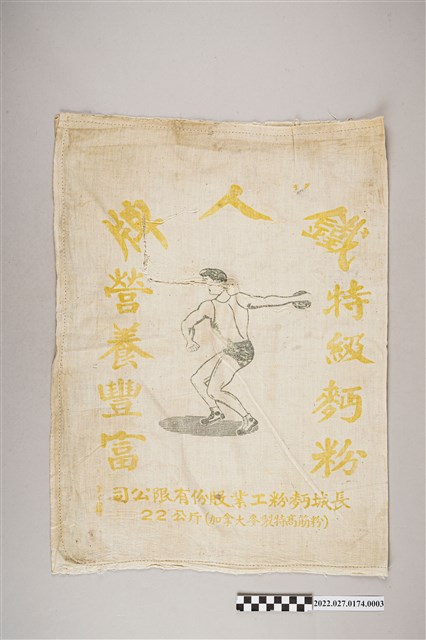 鐵人牌
特級麪粉
營養豐富
長城麪粉工業股份有限公司
22公斤(加拿大麥製特高筋粉)
2022.027.0174.0003